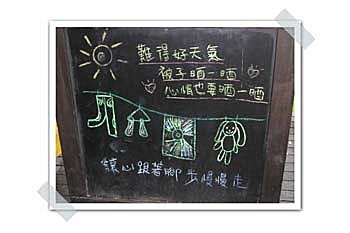 難得好天氣
被子晒一晒
心情也要晒一晒
讓心跟著腳步慢慢走